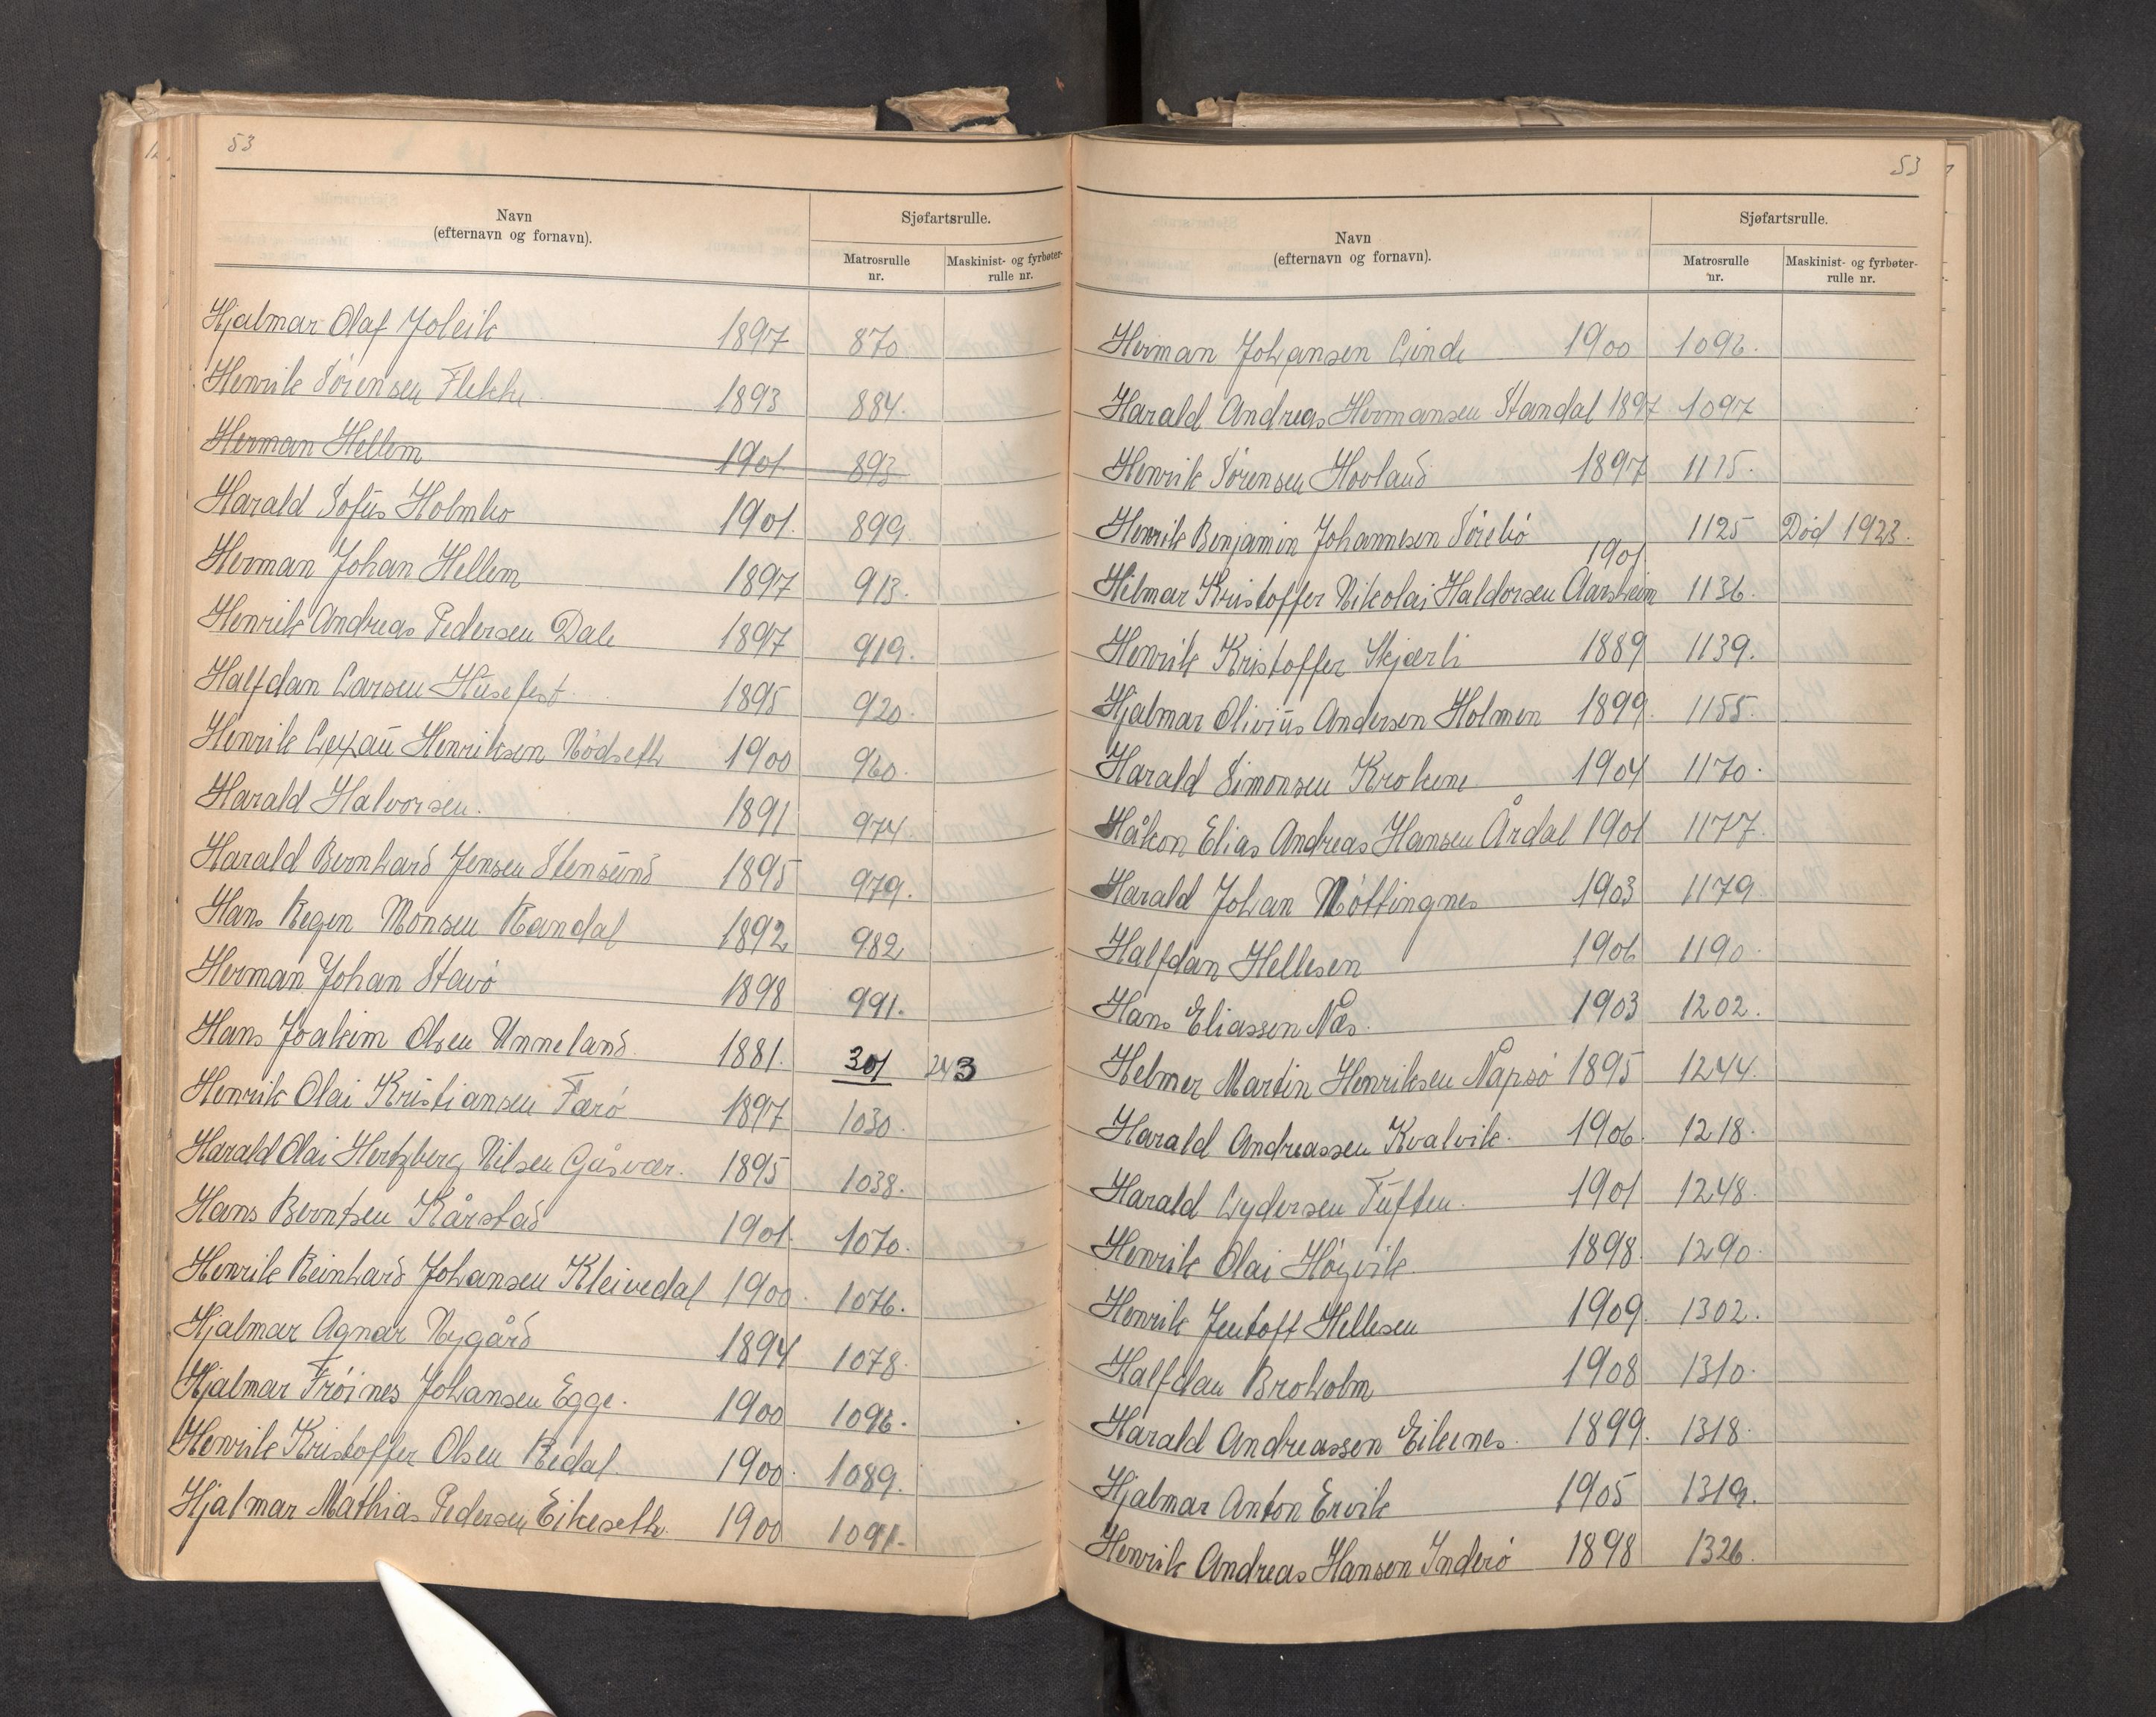 53
Navn
(efternavn og fornavn).
Sjøfartsrulle.
Matrosrulle
nr.
Maskinist- og fyrbøter-
rulle nr.
Hjalmar Olaf Joleik 1897 870
Henrik Sørensen Flekke 1893 884.
Herman Hellem 1901 893
Harald Sofus Holmbo 1901. 899.
Herman Johan Hellem 1897 913.
Henrik Andreas Pedersen Dale 1897 919.
Halfdan Larsen Husefest 1895 920.
Henrik Lexau Henriksen Nødseth 1900 960.
Harald Halvorsen. 1891 974.
Harald Bernhard Jensen Stensund 1895 979.
Hans Regen Monsen Randal 1892 982
Herman Johan Stavø 1898 991.
Hans Joakim Olsen Unneland. 1881. 301 243
Henrik Olai Kristiansen Færø 1897 1030.
Harald Olai Hertzberg Nilsen Gåsvær. 1895 1038.
Hans Berntsen Kårstad 1901. 1070.
Henrik Reinhard Johansen Kleivedal 1900. 1076.
Hjalmar Agnar Nygård 1894 1078.
Hjalmar Frøines Johansen Egge. 1900 1096.
Henrik Kristoffer Olsen Redal. 1900. 1089.
Hjalmar Mathias Pedersen Eikeseth. 1900 1091.
53
Navn
(efternavn og fornavn).
Sjøfartsrulle.
Matrosrulle
nr.
Maskinist- og fyrbøter-
rulle nr.
Herman Johansen Linde 1900 1096.
Harald Andreas Hermansen Standal 1897 1097
Henrik Sørensen Hovland 1897 1115.
Henrik Benjamin Johannesen Sørebø 1125 Død 1923.
1901
Hilmar Kristoffer Nikolai Haldorsen Aarsheim 1136.
Henrik Kristoffer Skjærli 1889 1139.
Hjalmar Olivius Andersen Holmen 1899. 1155.
Harald Simonsen Krokene 1904 1170.
Håkon Elias Andreas Hansen Årdal 1901 1177.
Harald Johan Nøttingnes 1903 1179.
Halfdan Hellesen 1906 1190.
Hans Eliassen Næs. 1903 1202.
Helmer Martin Henriksen Napsø 1895 1244.
Harald Andreassen Kvalvik. 1906. 1218.
Harald Lydersen Tuften. 1901 1248.
Henrik Olai Høyvik. 1898. 1290.
Henrik Jentoft Hellesen 1909. 1302.
Halfdan Broholm 1908 1310.
Harald Andreassen Eikenes. 1899. 1318.
Hjalmar Anton Ervik 1905 1319.
Henrik Andreas Hansen Inderø 1898 1326.